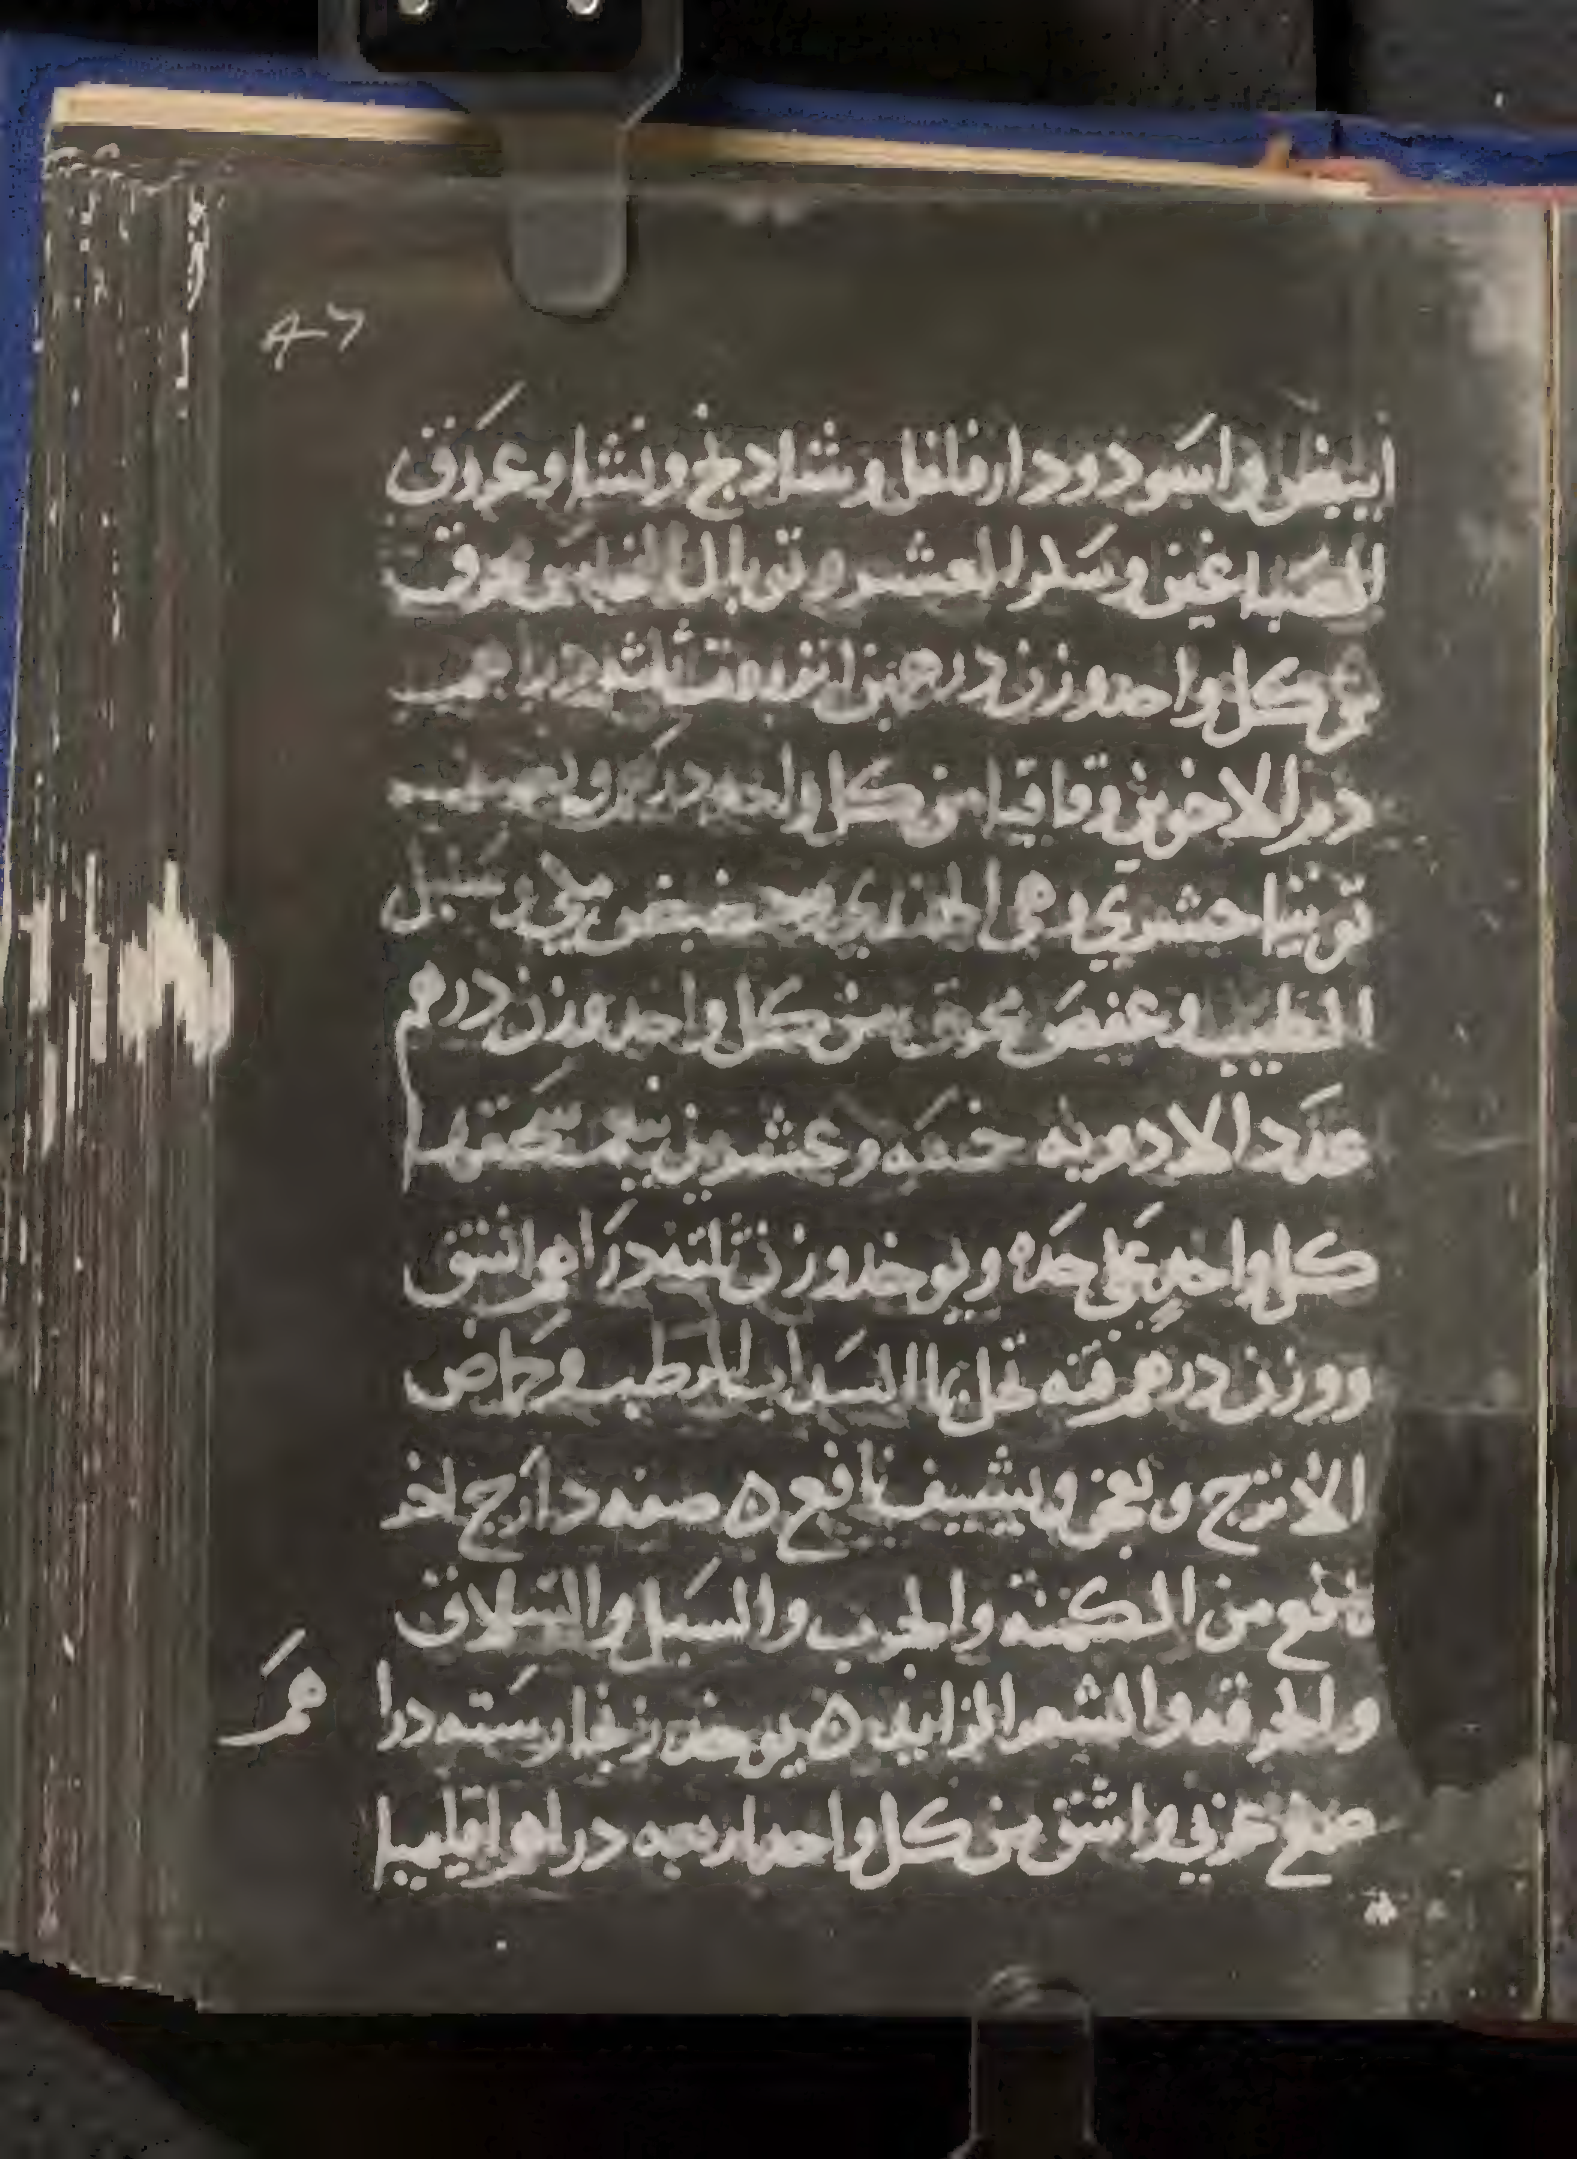 ٨٦
ابيض واسود ودار فلفل وشادنج ونشا وعروق
الصباغين وسكر العشر وتوبال النحاس محرق
من كل واحد وزن درهمين انزروت ثلثه دراهم
دم الاخوين وقاقيا من كل واحد درهم ونصف
توتيا حشري وهي الهندي وحضض مكي وسنبل
الطيب وعفص محرق من كل واحد وزن درهم
عدد الادويه خمسه وعشرون يتم سحقها
كل واحد على حده ويوخذ وزن ثلثه دراهم اشق
ووزن درهم قنه تحل بما السداب الرطب وحماض
الاترج وبعجن ويشيف نافع ه صفه دارج اخر
نافع من الكمنه والجرب والسبل والسلاق
والحرقه والشعر الزايد ه يوخذ زنجار سته درا
هم
صمغ عربي واشق من كل واحد اربعه دراهم اقليميا